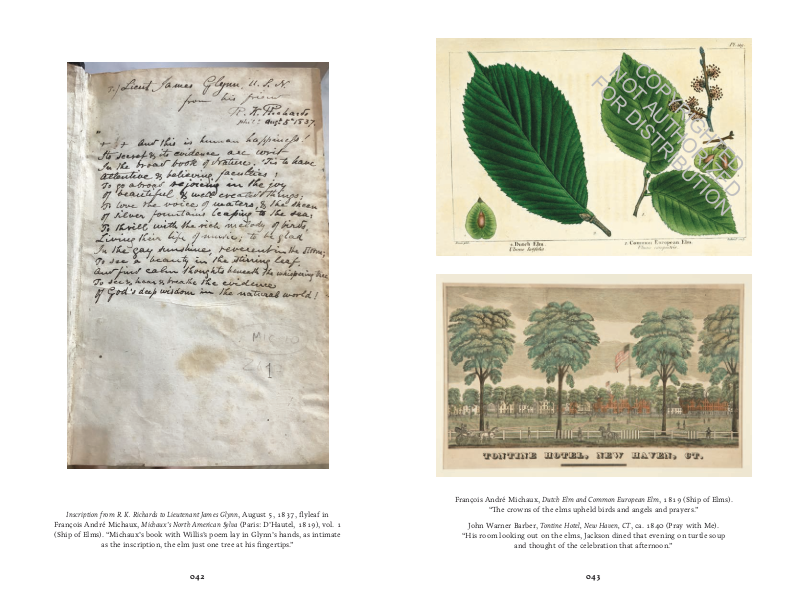 7.) Lieut James Glynn, U.S.N.
from his friend
R. K. Richards
Phil: Augt 5th 1837.
And this is human happiness!
Its secret & its evidence are writ
In the broad book of Nature. 'Tis to have
Attentive & believing faculties;
To go abroad rejoicing in the joy
Of beautiful & well created things;
To love the voice of waters, & the sheen
Of silver fountains leaping to the sea;
To thrill with the rich melody of birds,
Living their life of music; to be glad
In the gay sunshine, reverent in the storm;
To see a beauty in the stirring leaf,
And find calm thoughts beneath the whispering tree
To see & hear & breathe the evidence
Of God's deep wisdom in the natural world!
1
Inscription from R. K. Richards to Lieutenant James Glynn, August 5, 1837, flyleaf in
François André Michaux, Michaux's North American Sylva (Paris: D'Hautel, 1819), vol. 1
(Ship of Elms). “Michaux's book with Willis's poem lay in Glynn's hands, as intimate
as the inscription, the elm just one tree at his fingertips.”
042
COPYRIGHTED
NOT AUTHORIZED
FOR DISTRIBUTION
1. Dutch Elm.
2. Common European Elm.
TONTINE HOTEL, NEW HAVEN, CT.
François André Michaux, Dutch Elm and Common European Elm, 1819 (Ship of Elms).
“The crowns of the elms upheld birds and angels and prayers.”
John Warner Barber, Tontine Hotel, New Haven, CT, ca. 1840 (Pray with Me).
“His room looking out on the elms, Jackson dined that evening on turtle soup
and thought of the celebration that afternoon.”
043